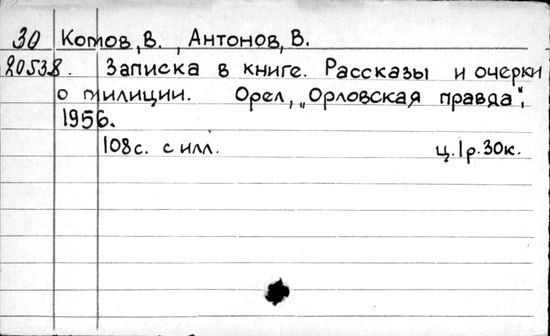 30 Котов, В., Антонов, В.
20538. Записка в книге. Рассказы и очерки
о милиции. Орел, „Орловская правда",
1956.
108с. с илл. ц.1р.30к.